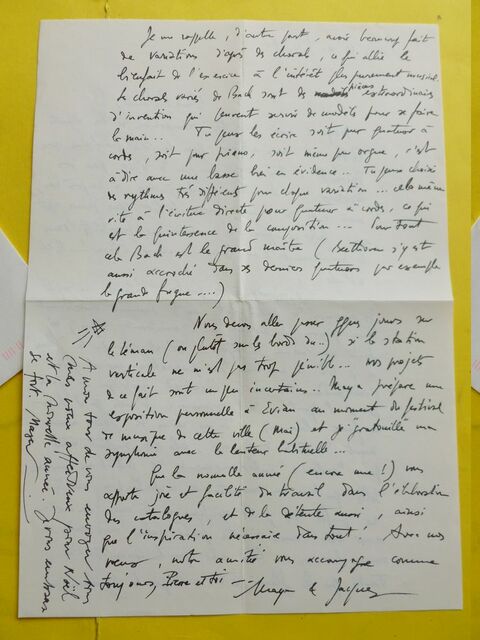 Je me rappelle, d'autre part, avoir beaucoup fait
de variations d'après des choral, ce qui allie le
bienfait de l'exercice à l'intérêt plus purement musical.
Le chorals variés de Bach sont des pièces extraordinaires
d'invention qui peuvent servir de modèle pour se faire
la main... Tu peux les écrire soit pour quatuor à
cordes, soit pour piano, soit même pour orgue, c'est
à dire avec une basse bien en évidence.. Tu peux choisir
des rythmes très différents pour chaque variation... cela mène
vite à l'écriture directe pour quatuor à cordes, ce qui
est la quintessence de la composition... Pour tout
cela Bach est le grand maître (Beethoven s'y est
aussi accroché dans ses derniers quatuors par exemple
la grande fugue....)
Nous devons aller pour qques jours sur
le Léman (ou plutôt sur le bord du..) si la station
verticale ne m'est pas trop pénible... nos projets
de ce fait sont un peu incertains.. Maya prépare une
exposition personnelle à Evian au moment du festival
de musique de cette ville (Mai) et je gratouille une
symphonie avec la lenteur habituelle...
Que la nouvelle année (encore une!) vous
apporte joie et facilité du travail dans l'élaboration
des catalogues, et de la détente aussi, ainsi
que l'inspiration nécessaire dans tout! Avec nos
vœux, notre amitié vous accompagne comme
toujours, Pierre et toi —
Maya & Jacques
A mon tour de vous envoyer tous
mes vœux affectueux pour Noël
et la nouvelle année. Je vous embrasse
fort, Maya